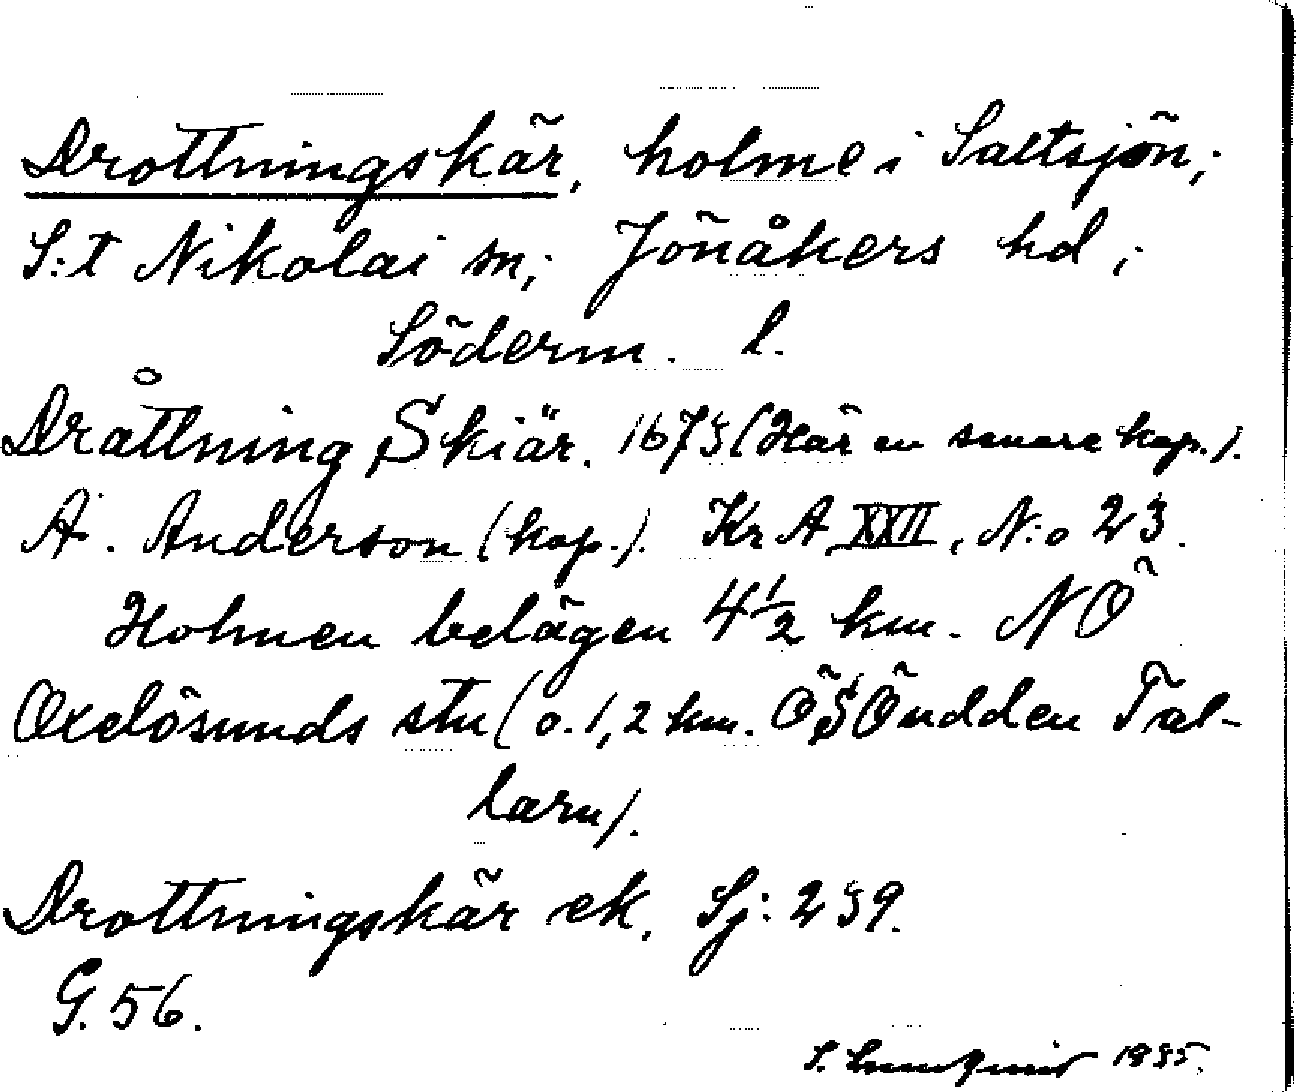 Drottningskär, holme i Saltsjön;
S:t Nikolai sn; Jönåkers hd;
Söderm. l.
Dråttning Skiär. 1673 (Här en senare kop.).
A. Anderson (kop.). Kr A, XXII, N:o 23.
Holmen belägen 4 1/2 km. NÖ
Oxelösunds stn (o. 1,2 km. ÖSÖ udden Tal-
larn).
Drottningskär ek. Sj: 239.
G. 56.
S. 1935.